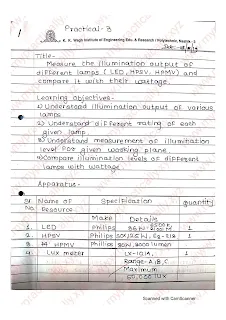 Practical-3
K. K. Wagh Institute of Engineering Edu. & Research (Polytechnic), Nashik-3
Title-
Measure the illumination output of
different lamps (LED, HPSV, HPMV) and
compare it with their wattage.
Learning objectives-
1) Understand illumination output of various
lamps
2) Understand different rating of each
given lamp.
3) Understand measurement of illumination
level for given working plane
4) Compare illumination levels of different
lamps with wattage
Apparatus-
Sr. No. Name of Resource Specification quantity
Make Details
1. LED Philips 1
2. HPSV Philips 1
3. HPMV Philips 80W, 3000 lumen
4. Lux meter LX-101A, 1
Range-A,B,C
Maximum
50,000 lux
Scanned with CamScanner